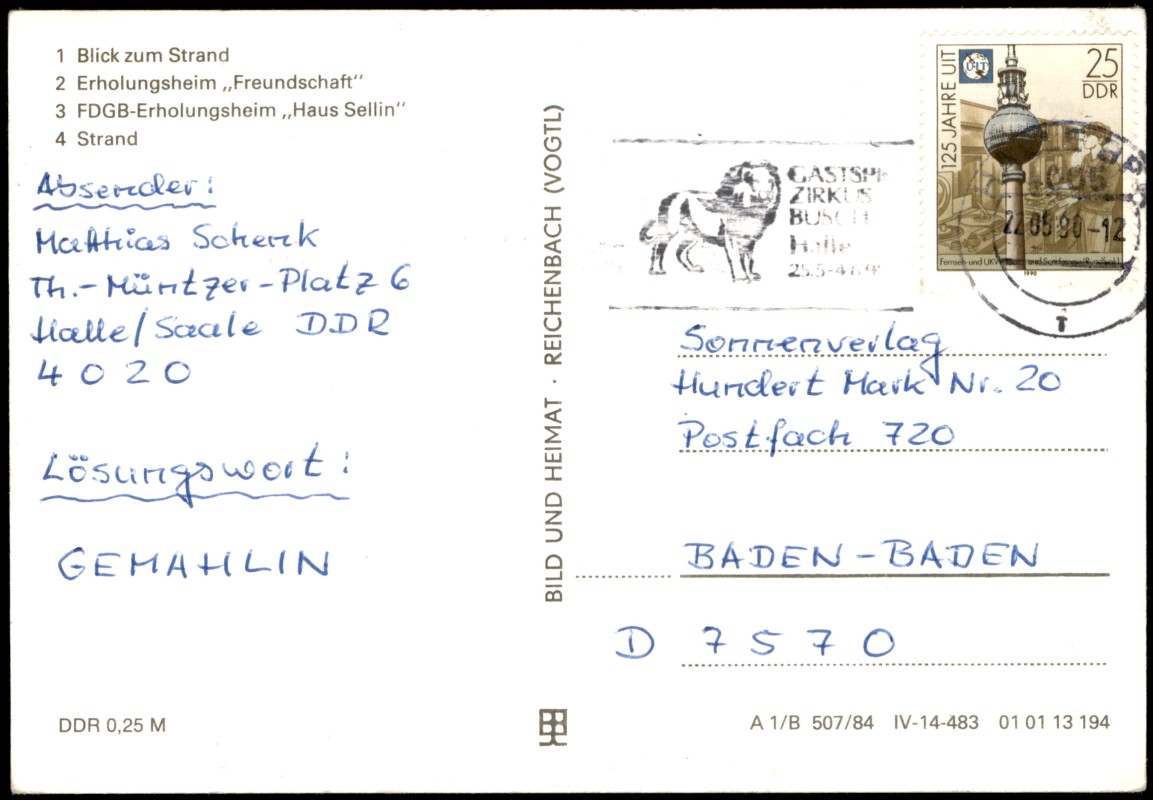 1 Blick zum Strand
2 Erholungsheim „Freundschaft"
3 FDGB-Erholungsheim „Haus Sellin"
4 Strand
Absender:
Matthias Schenk
Th.-Müntzer-Platz 6
Halle/Saale DDR
4 0 2 0
Lösungswort:
GEMAHLIN
DDR 0,25 M
BILD UND HEIMAT · REICHENBACH (VOGTL)
GASTSPI
ZIRKUS
BUSCH
Halle
25.5-4.
125 JAHRE UIT
UIT
25
DDR
Fernseh- und UKW-
1990
-12
T
Sonnenverlag
Hundert Mark Nr. 20
Postfach 720
BADEN-BADEN
D 7 5 7 0
A 1/B 507/84 IV-14-483 01 01 13 194